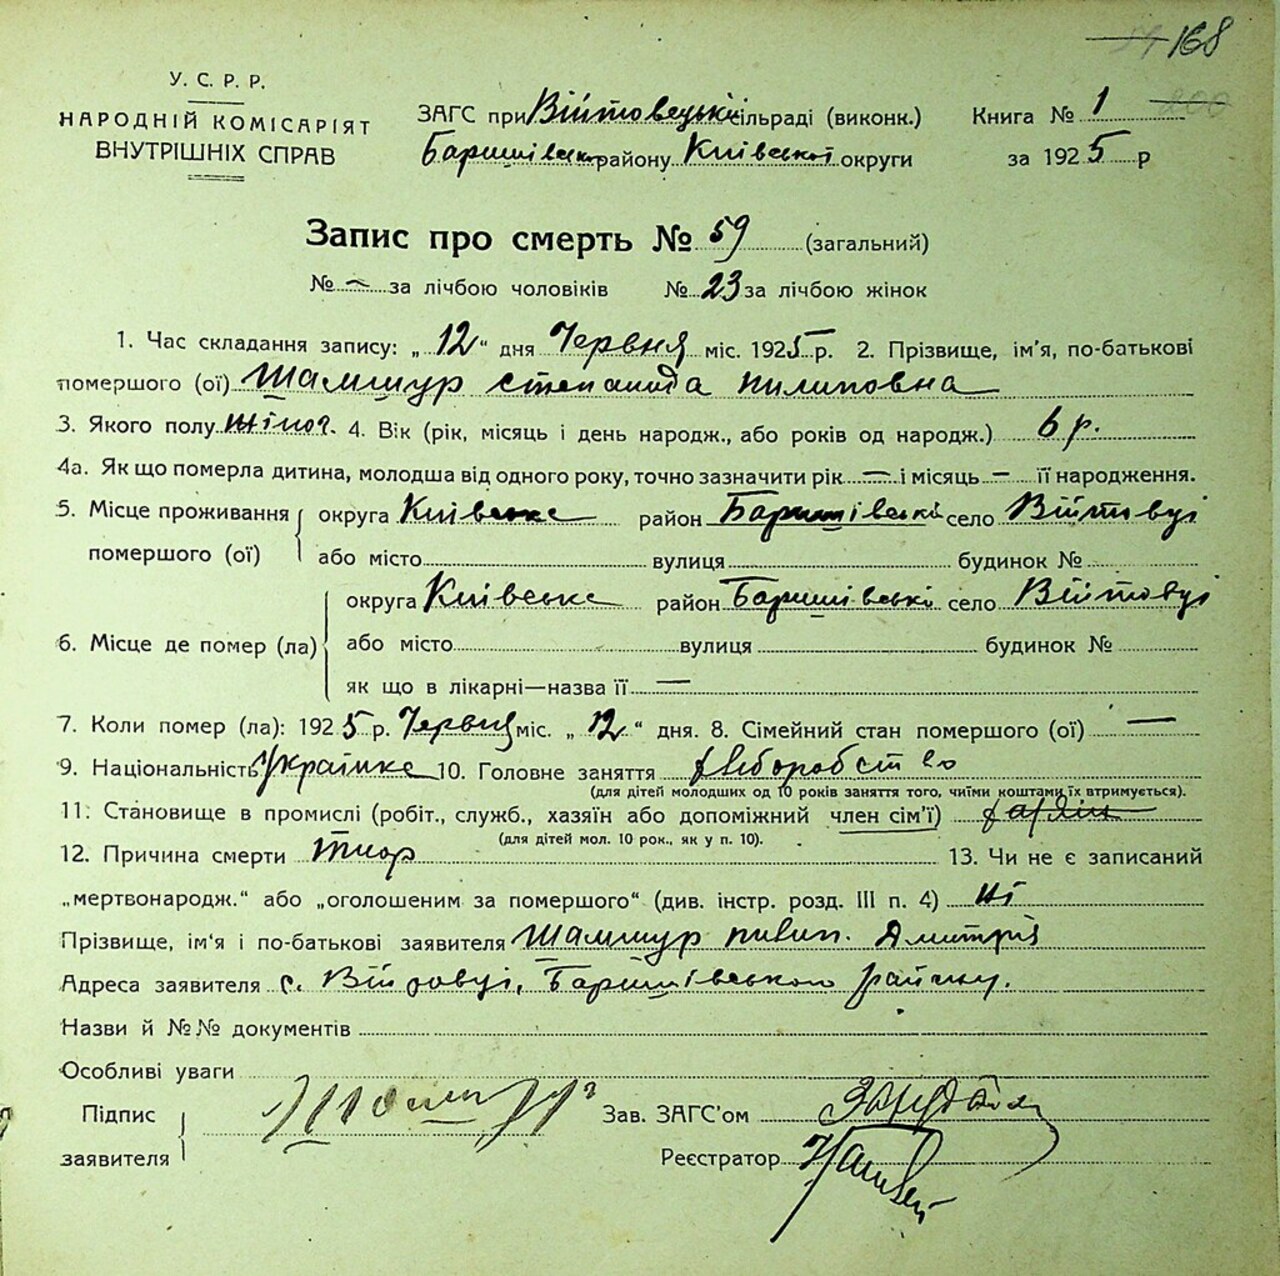 168
У. С. Р. Р.
НАРОДНІЙ КОМІСАРІЯТ
ВНУТРІШНІХ СПРАВ
ЗАГС при Війтовецькій сільраді (виконк.)
Баришівськ. району Київської округи
Книга № 1
за 1925 р
Запис про смерть № 59 (загальний)
№ — за лічбою чоловіків № 23 за лічбою жінок
1. Час складання запису: „12“ дня Червня міс. 1925 р. 2. Прізвище, ім'я, по-батькові
помершого (ої) Шамшур степанида пилиповна
3. Якого полу жіноч. 4. Вік (рік, місяць і день народж., або років од народж.) 6 р.
4а. Як що померла дитина, молодша від одного року, точно зазначити рік — і місяць — її народження.
5. Місце проживання помершого (ої) округа Київське район Баришівські село Війтовці
або місто вулиця будинок №
6. Місце де помер (ла) округа Київське район Баришівські село Війтовці
або місто вулиця будинок №
як що в лікарні—назва її —
7. Коли помер (ла): 1925 р. Червня міс. „12“ дня. 8. Сімейний стан помершого (ої) —
9. Національність Українка 10. Головне заняття хліборобство
(для дітей молодших од 10 років заняття того, чиїми коштами їх втримується).
11. Становище в промислі (робіт., служб., хазяїн або допоміжний член сім'ї)
(для дітей мол. 10 рок., як у п. 10).
12. Причина смерти 13. Чи не є записаний
„мертвонародж.“ або „оголошеним за помершого“ (див. інстр. розд. III п. 4) ні
Прізвище, ім'я і по-батькові заявителя Шамшур пилип. Дмитрів
Адреса заявителя с. Війтовці, Баришівського району.
Назви й №№ документів
Особливі уваги
Підпис заявителя Шамшур
Зав. ЗАГС'ом
Реєстратор